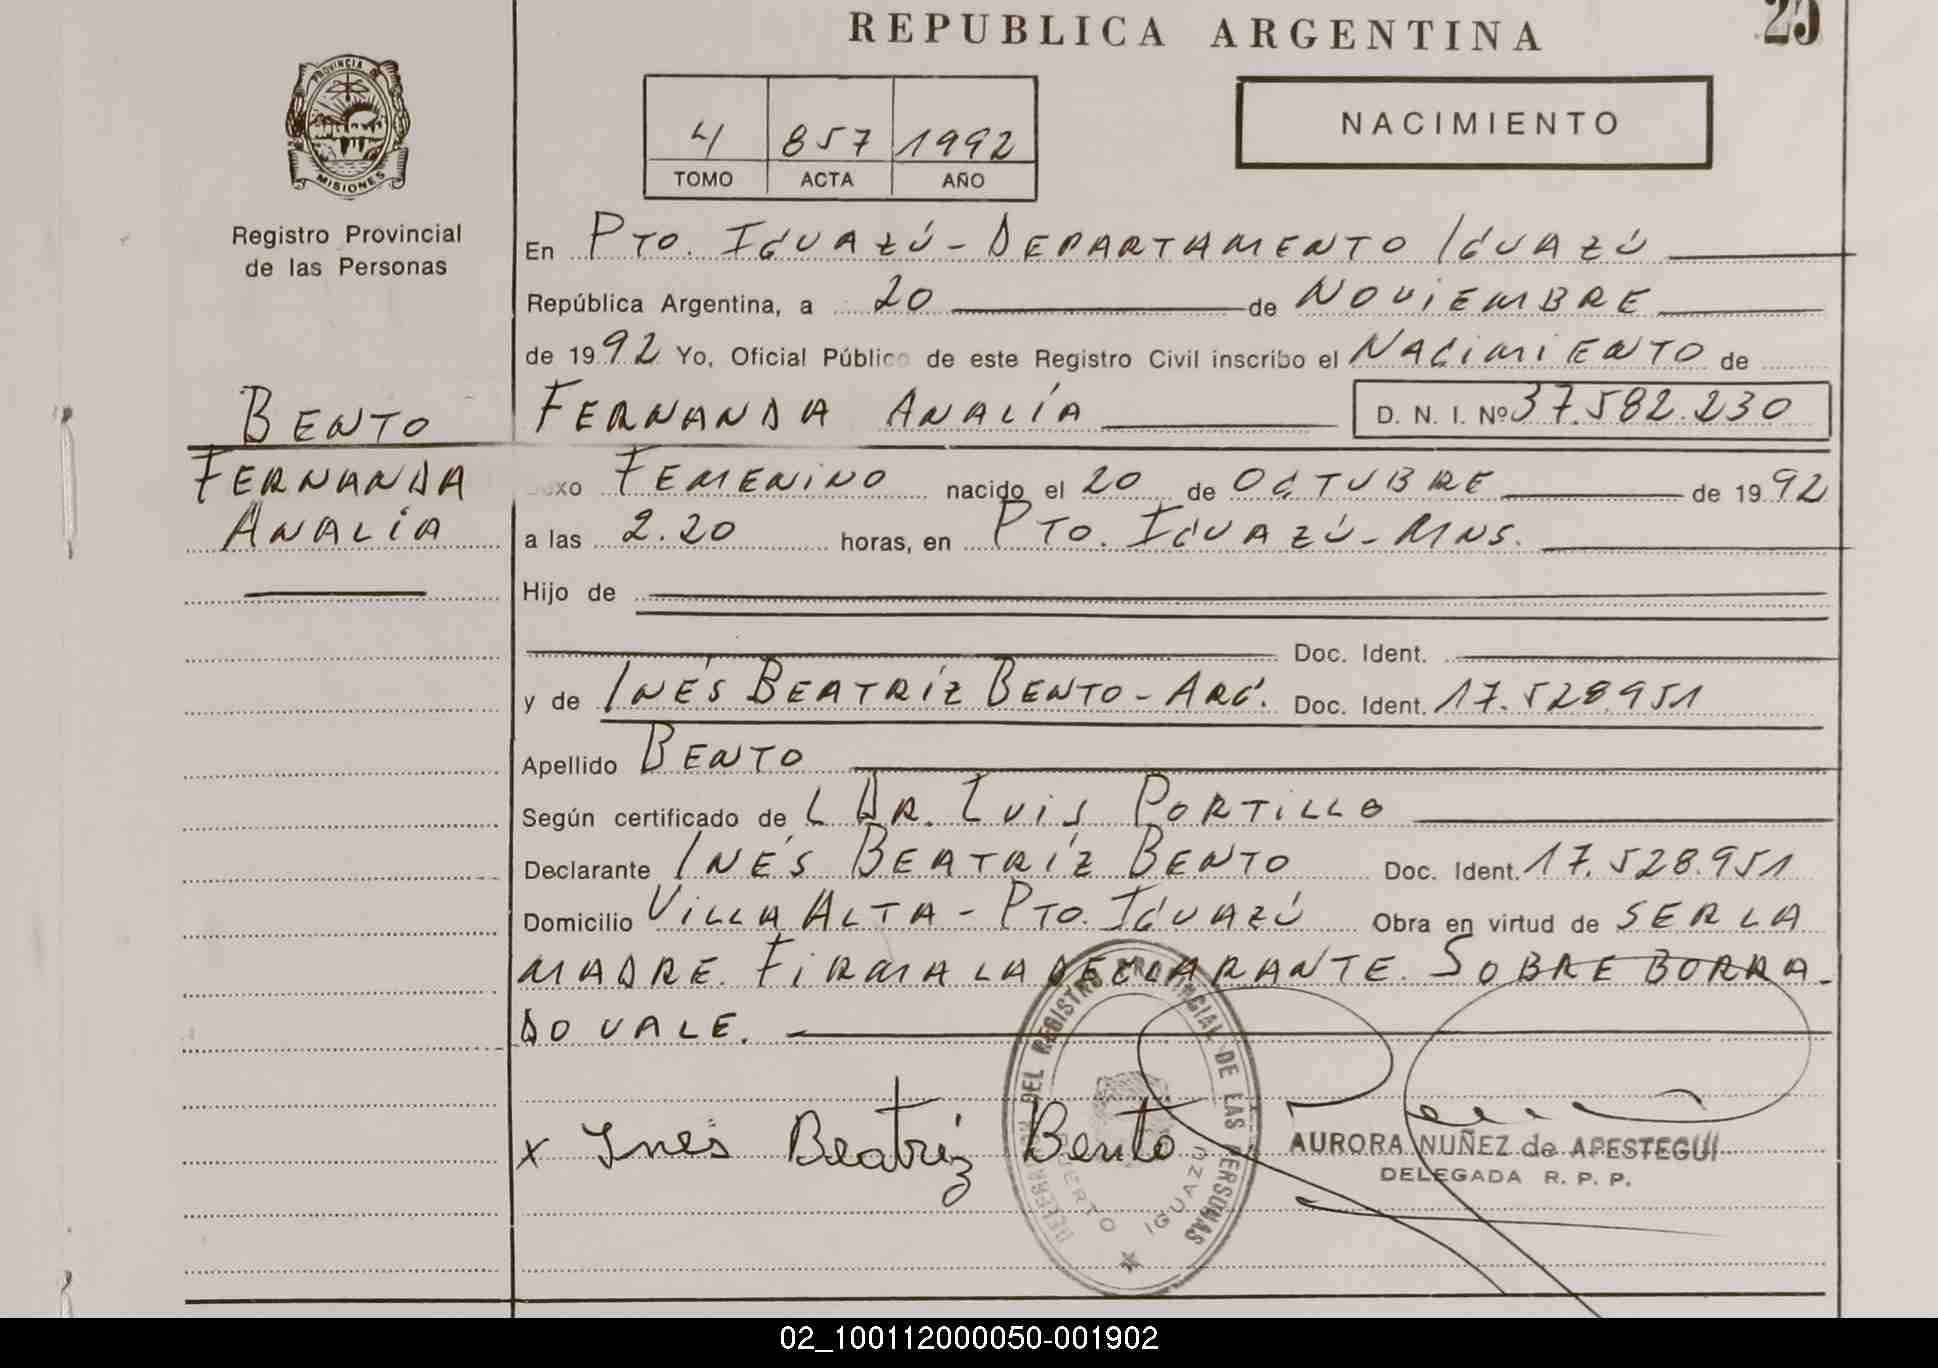 REPUBLICA ARGENTINA
25
PROVINCIA DE
MISIONES
Registro Provincial
de las Personas
4 857 1992
TOMO ACTA AÑO
NACIMIENTO
En PTO. IGUAZÚ - DEPARTAMENTO IGUAZÚ
República Argentina, a 20 de NOVIEMBRE
de 1992 Yo, Oficial Público de este Registro Civil inscribo el NACIMIENTO de
BENTO
FERNANDA
ANALÍA
FERNANDA ANALÍA D. N. I. Nº 37.582.230
Sexo FEMENINO nacido el 20 de OCTUBRE de 1992
a las 2.20 horas, en PTO. IGUAZÚ - MNS.
Hijo de
Doc. Ident.
y de INÉS BEATRÍZ BENTO - ARG. Doc. Ident. 17.528.951
Apellido BENTO
Según certificado de L DR. LUIS PORTILLO
Declarante INÉS BEATRÍZ BENTO Doc. Ident. 17.528.951
Domicilio VILLA ALTA - PTO. IGUAZÚ Obra en virtud de SER LA
MADRE. FIRMA LA DECLARANTE. SOBRE BORRA-
DO VALE.
x Inés Beatríz Bento
DEL REGISTRO PROVINCIAL DE LAS PERSONAS
PUERTO IGUAZU
AURORA NUÑEZ de APESTEGUI
DELEGADA R. P. P.
02_100112000050-001902